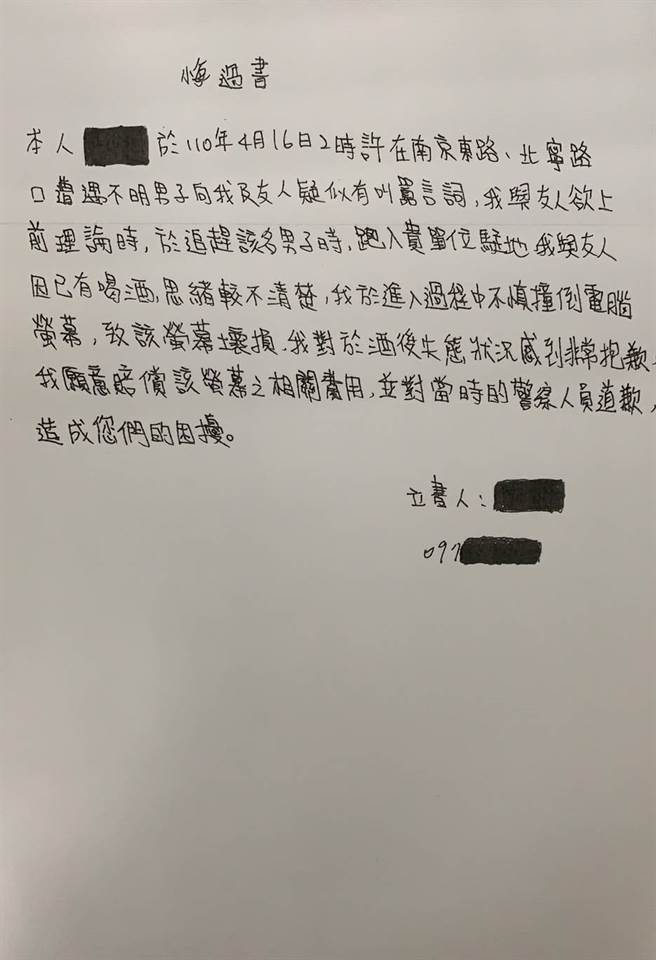 悔過書
本人 於110年4月16日2時許在南京東路、北寧路
口遭遇不明男子向我及友人疑似有叫罵言詞,我與友人欲上
前理論時,於追趕該名男子時,跑入貴單位駐地我與友人
因已有喝酒,思緒較不清楚,我於進入過程中不慎撞倒電腦
螢幕,致該螢幕壞損、我對於酒後失態狀況感到非常抱歉。
我願意賠償該螢幕之相關費用,並對當時的警察人員道歉,
造成您們的困擾。
立書人:
097